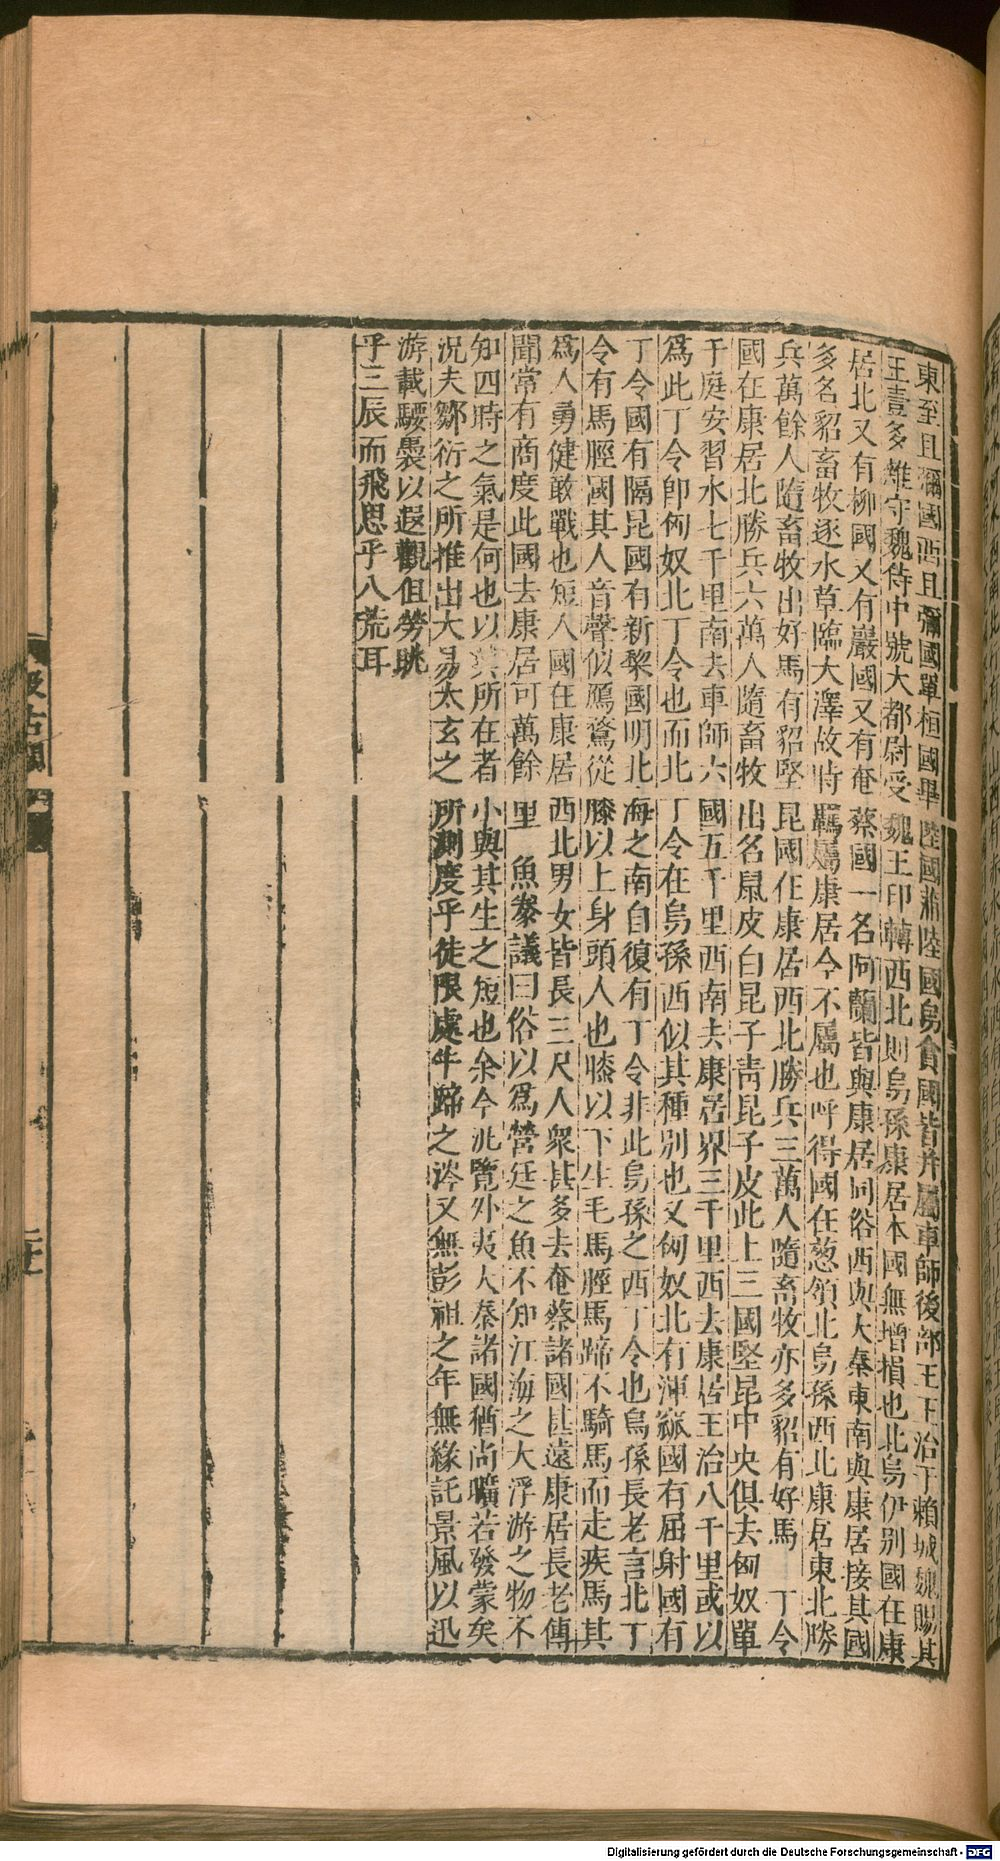 東至且彌國西且彌國單桓國畢陸國蒲陸國烏貪國皆并屬車師後部王王治于賴城魏賜其
王壹多雜守魏侍中號大都尉受魏王印轉西北則烏孫康居本國無增損也北烏伊別國在康
居北又有柳國又有巖國又有奄蔡國一名阿蘭皆與康居同俗西與大秦東南與康居接其國
多名貂畜牧逐水草臨大澤故時羈屬康居今不屬也呼得國在葱嶺北烏孫西北康居東北勝
兵萬餘人隨畜牧出好馬有貂堅昆國在康居西北勝兵三萬人隨畜牧亦多貂有好馬 丁令
國在康居北勝兵六萬人隨畜牧出名鼠皮白昆子青昆子皮此上三國堅昆中央俱去匈奴單
于庭安習水七千里南去車師六國五千里西南去康居界三千里西去康居王治八千里或以
爲此丁令卽匈奴北丁令也而北丁令在烏孫西似其種別也又匈奴北有渾窳國有屈射國有
丁令國有隔昆國有新棃國明北海之南自復有丁令非此烏孫之西丁令也烏孫長老言北丁
令有馬脛國其人音聲似鴈鶩從膝以上身頭人也膝以下生毛馬脛馬蹄不騎馬而走疾馬其
爲人勇健敢戰也短人國在康居西北男女皆長三尺人衆甚多去奄蔡諸國甚遠康居長老傳
聞常有商度此國去康居可萬餘里 魚豢議曰俗以爲營廷之魚不知江海之大浮游之物不
知四時之氣是何也以其所在者小與其生之短也余今汎覽外夷大秦諸國猶尚曠若發蒙矣
況夫鄒衍之所推出大易太玄之所測度乎徒限處牛蹄之涔又無彭祖之年無緣託景風以迅
游載騕褭以遐觀但勞眺
乎三辰而飛思乎八荒耳
Digitalisierung gefördert durch die Deutsche Forschungsgemeinschaft - DFG